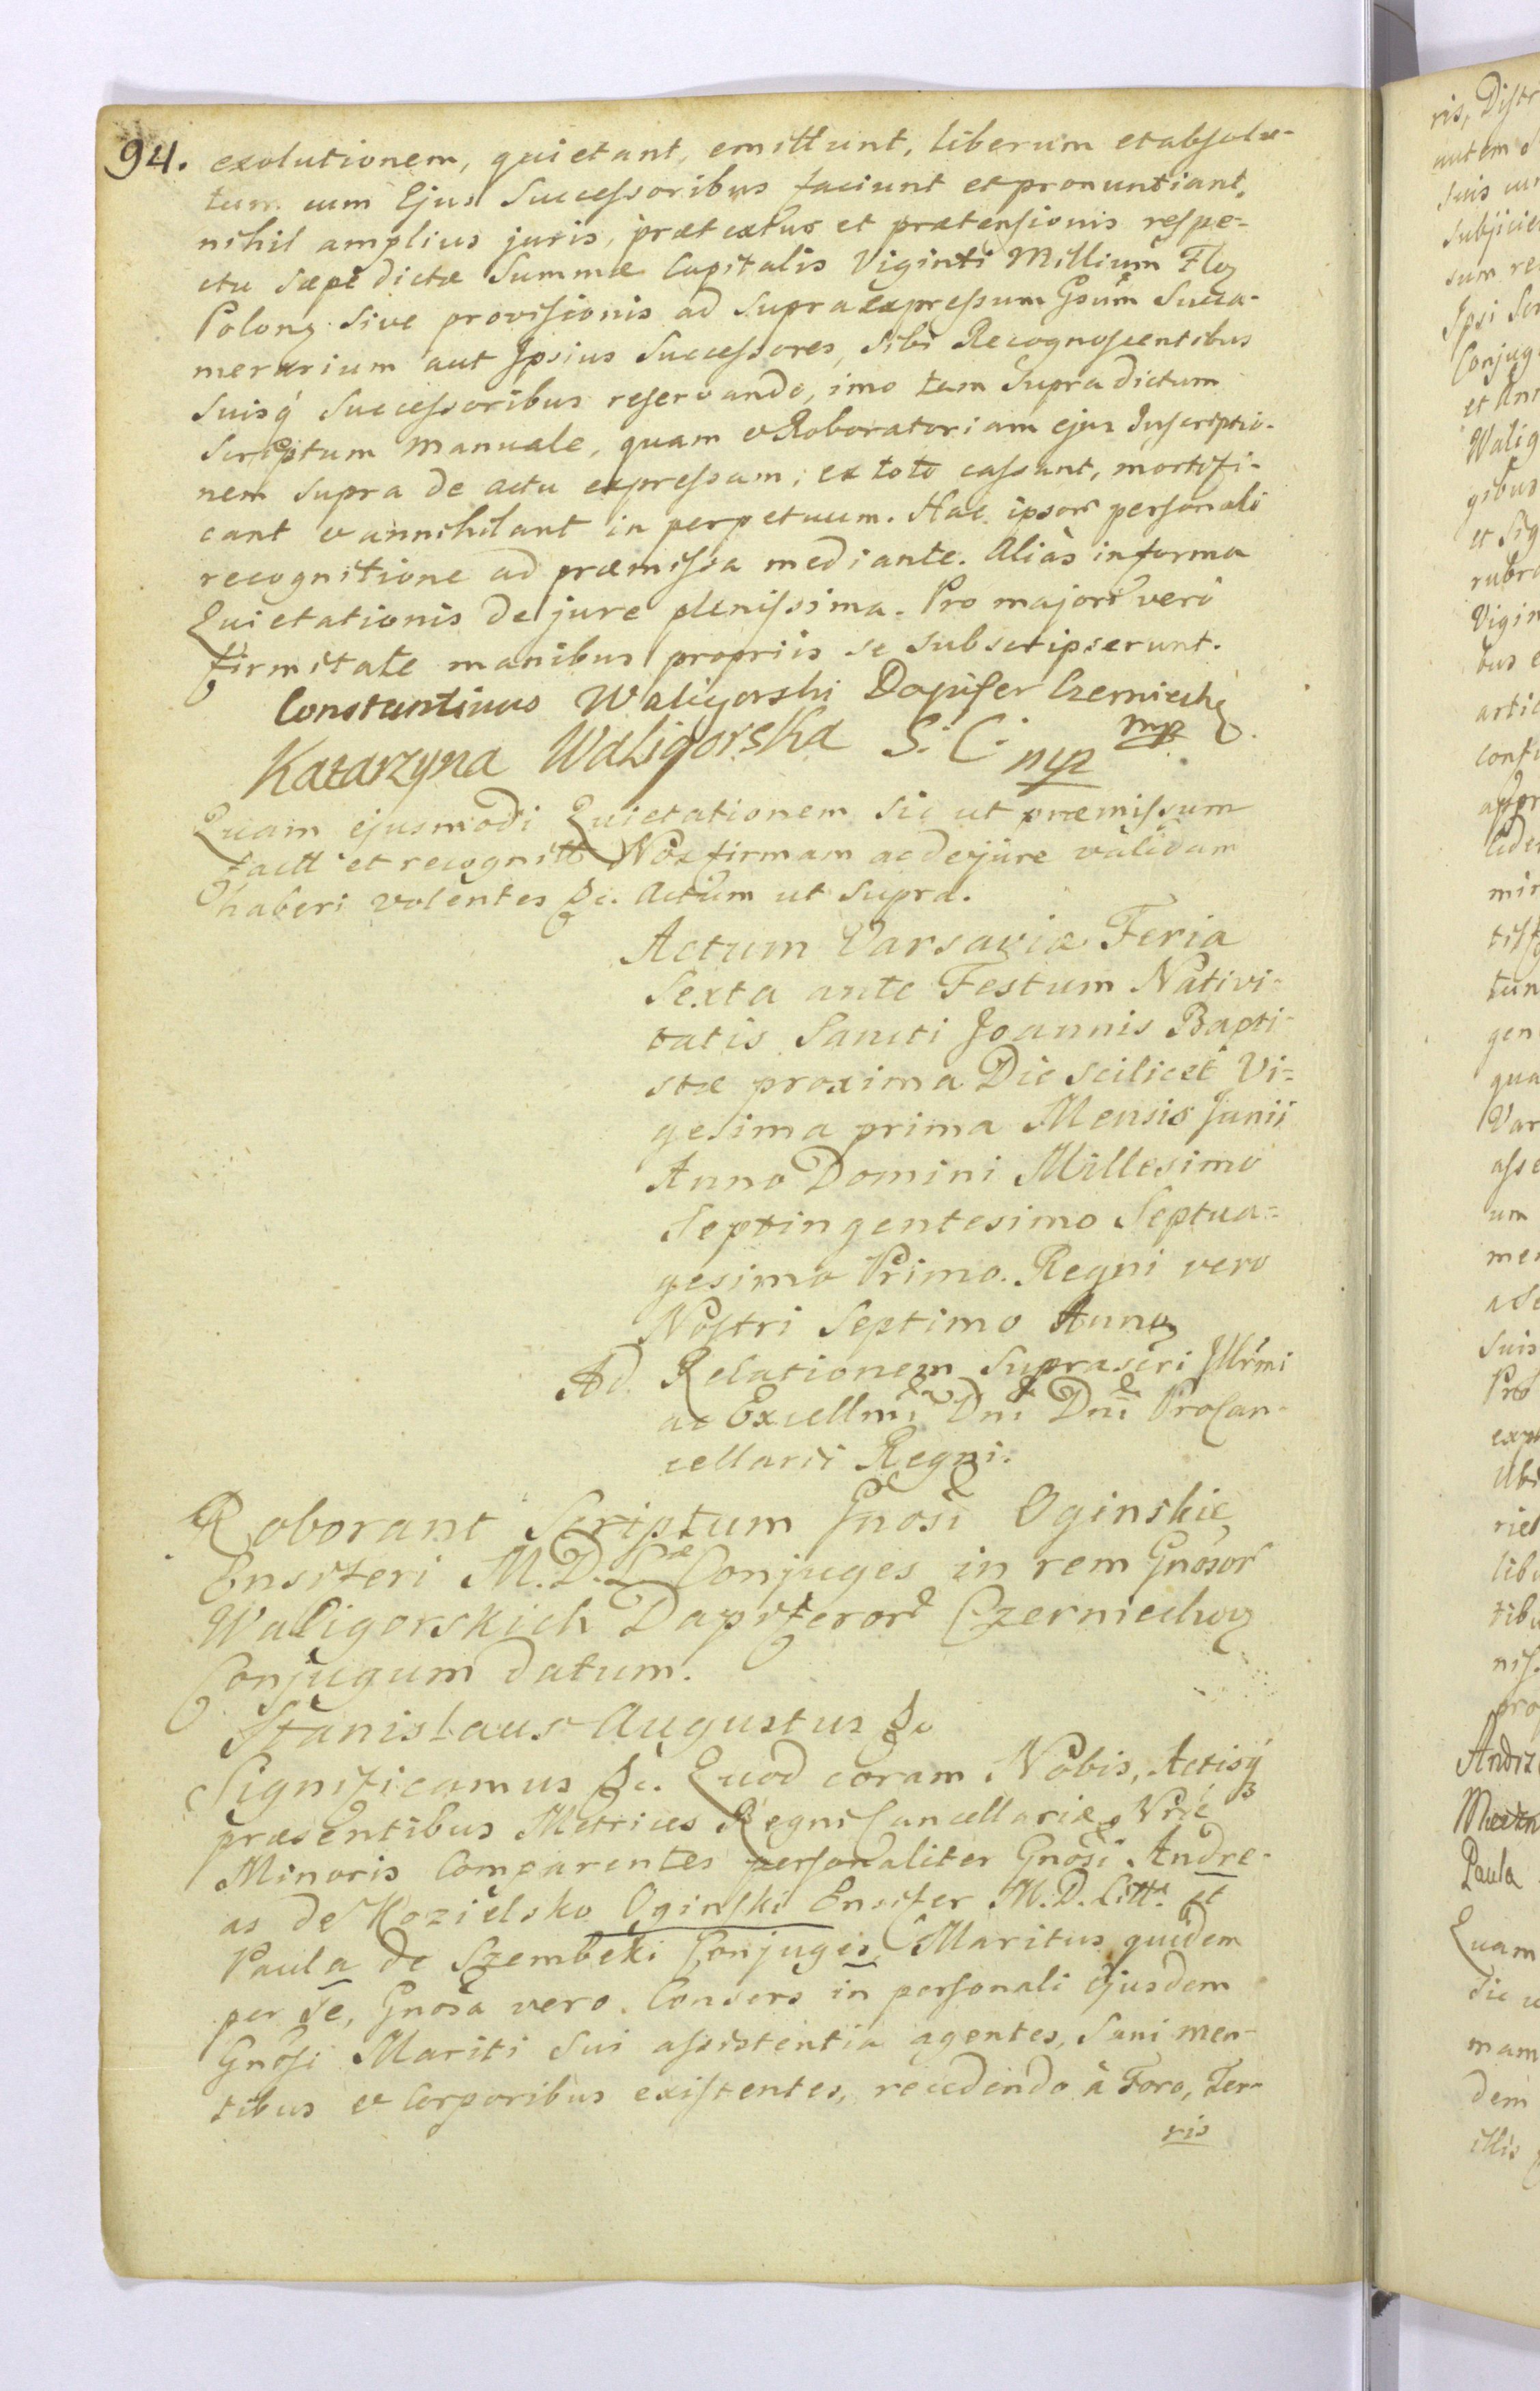 94. exolutionem, quietant, emittunt, liberum et absolu-
tum cum Ejus Successoribus faciunt et pronuntiant,
nihil amplius juris, prætextus et prætensionis respe-
ctu sæpe dictæ Summæ Capitalis Viginti Millium Flor
Polonr. sive provisionis ad supraexpressum Gsum Succa-
merarium aut Ipsius Successores, sibi Recognoscentibus
suisq Successoribus reservando, imo tam Supradictum
Scriptum manuale, quam et Roboratoriam ejus Inscriptio-
nem supra de actu expressam, ex toto cassant, mortifi-
cant et annihilant in perpetuum. Hac ipsor personali
recognitione ad præmissa mediante. Alias in forma
Quietationis de jure plenissima. Pro majori vero
firmitate manibus propriis se subscripserunt.
Constantinus Waligorski Dapifer Czerniechr
mp
Katarzyna Waligorska S: C: mp
Quam ejusmodi Quietationem sic ut præmissum
factt et recognitt Nos firmam ac de jure validam
haberi volentes &c. Actum ut Supra.
Actum Varsaviæ Feria
Sexta ante Festum Nativi-
tatis Sancti Joannis Bapti-
stæ proxima Die scilicet Vi-
gesima prima Mensis Junii
Anno Domini Millesimo
Septingentesimo Septua-
gesimo Primo. Regni vero
Nostri Septimo Anno
Ad Relationem Suprascri Illrmi
ac Excellmi Dni Dni ProCan-
cellarii Regni.
Roborant Scriptum Gnosi Oginskie
Ensiferi M. D. Læ Conjuges in rem Gnosor
Waligorskich Dapiferor Czerniechor
Conjugum datum.
Stanislaus Augustus &c
Significamus &c. Quod coram Nobis, Actisq
præsentibus Metrices Regni Cancellariæ Nræ
Minoris Comparentes personaliter Gnosi Andre-
as de Kozielsko Oginski Ensifer M. D. Litt. et
Paula de Szembeki Conjuges, Maritus quidem
per se, Gnosa vero Consors in personali Ejusdem
Gnosi Mariti sui assistentia agentes, Sani men-
tibus et Corporibus existentes, recedendo à Foro, Ter-
ris